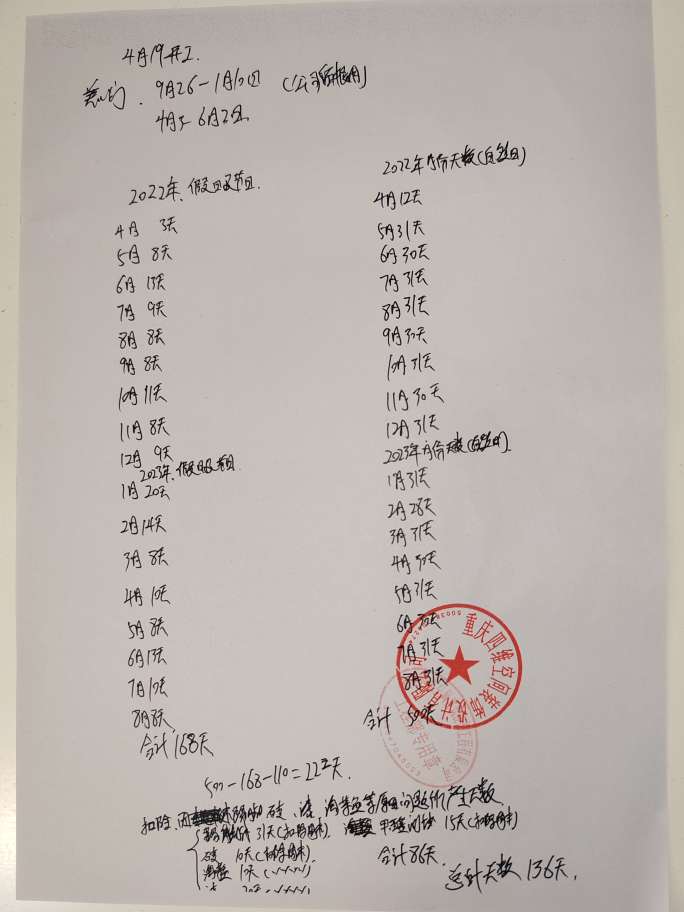 4月19开工.
9月26-1月10日
4月 6月2日
2022年.假日及节日.
4月 3天
5月 8天
6月 13天
7月 9天
8月 8天
9月 8天
10月 11天
11月 8天
12月 9天
2023年.假日及节日
1月 20天
2月 14天
3月 8天
4月 10天
5月 8天
6月 13天
7月 10天
8月 8天
合计 168天
2022年月份天数(自然日)
4月 12天
5月 31天
6月 30天
7月 31天
8月 31天
9月 30天
10月 31天
11月 30天
12月 31天
2023年月份天数(自然日).
1月 31天
2月 28天
3月 31天
4月 30天
5月 31天
6月 30天
7月 31天
8月 31天
合计 500天
重庆四维空间装饰设计有限公司
专用章
500-168-110=222天.
扣除.
31天(扣除周末)
15天(扣除周末)
10天(扣除周末)
合计86天.
总计天数 136天.